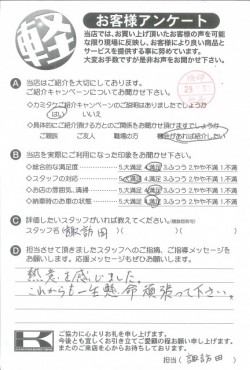 軽
お客様アンケート
当店では、お買い上げ頂いたお客様の声を可能
な限り現場に反映し、お客様により良い商品と
サービスを提供する事に努めています。
大変お手数ですが是非お声をお聞かせ下さい。
A 当店はご紹介を大切にしております。
ご紹介キャンペーンについてお聞かせ下さい。
・カミタケご紹介キャンペーンのご説明はありましたでしょうか
はい いいえ
・具体的にご紹介頂ける方とのご関係をお聞かせ頂けますでしょうか
ご親族 ご友人 職場の方 機会があれば紹介したい
B 当店を実際にご利用になった印象をお聞かせ下さい。
・総合的な満足度 5.大満足 4.満足 3.ふつう 2.やや不満 1.不満
・スタッフの対応 5.大満足 4.満足 3.ふつう 2.やや不満 1.不満
・お店の雰囲気、清掃 5.大満足 4.満足 3.ふつう 2.やや不満 1.不満
・納車時のお車の状態 5.大満足 4.満足 3.ふつう 2.やや不満 1.不満
C 評価したいスタッフがいれば教えてください。(複数回答可)
スタッフ名( 諏訪田 )
D 担当させて頂きましたスタッフへのご指摘、ご指導メッセージを
お願いします。応援メッセージもぜひお願いします。
熱意を感じました。
これからも一生懸命頑張って下さい。
K
ご協力に心よりお礼を申し上げます。
今後とも宜しくお引き立てご愛顧の程お願い申し上げます。
またのご来店を心からお待ちしております。
担当( 諏訪田 )